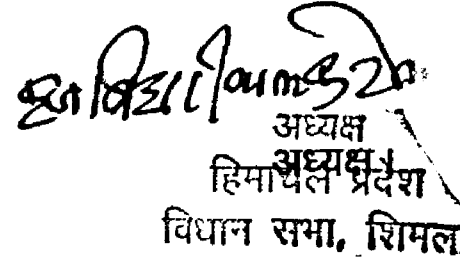 अध्यक्ष
अध्यक्ष।
हिमाचल प्रदेश
विधान सभा, शिमल